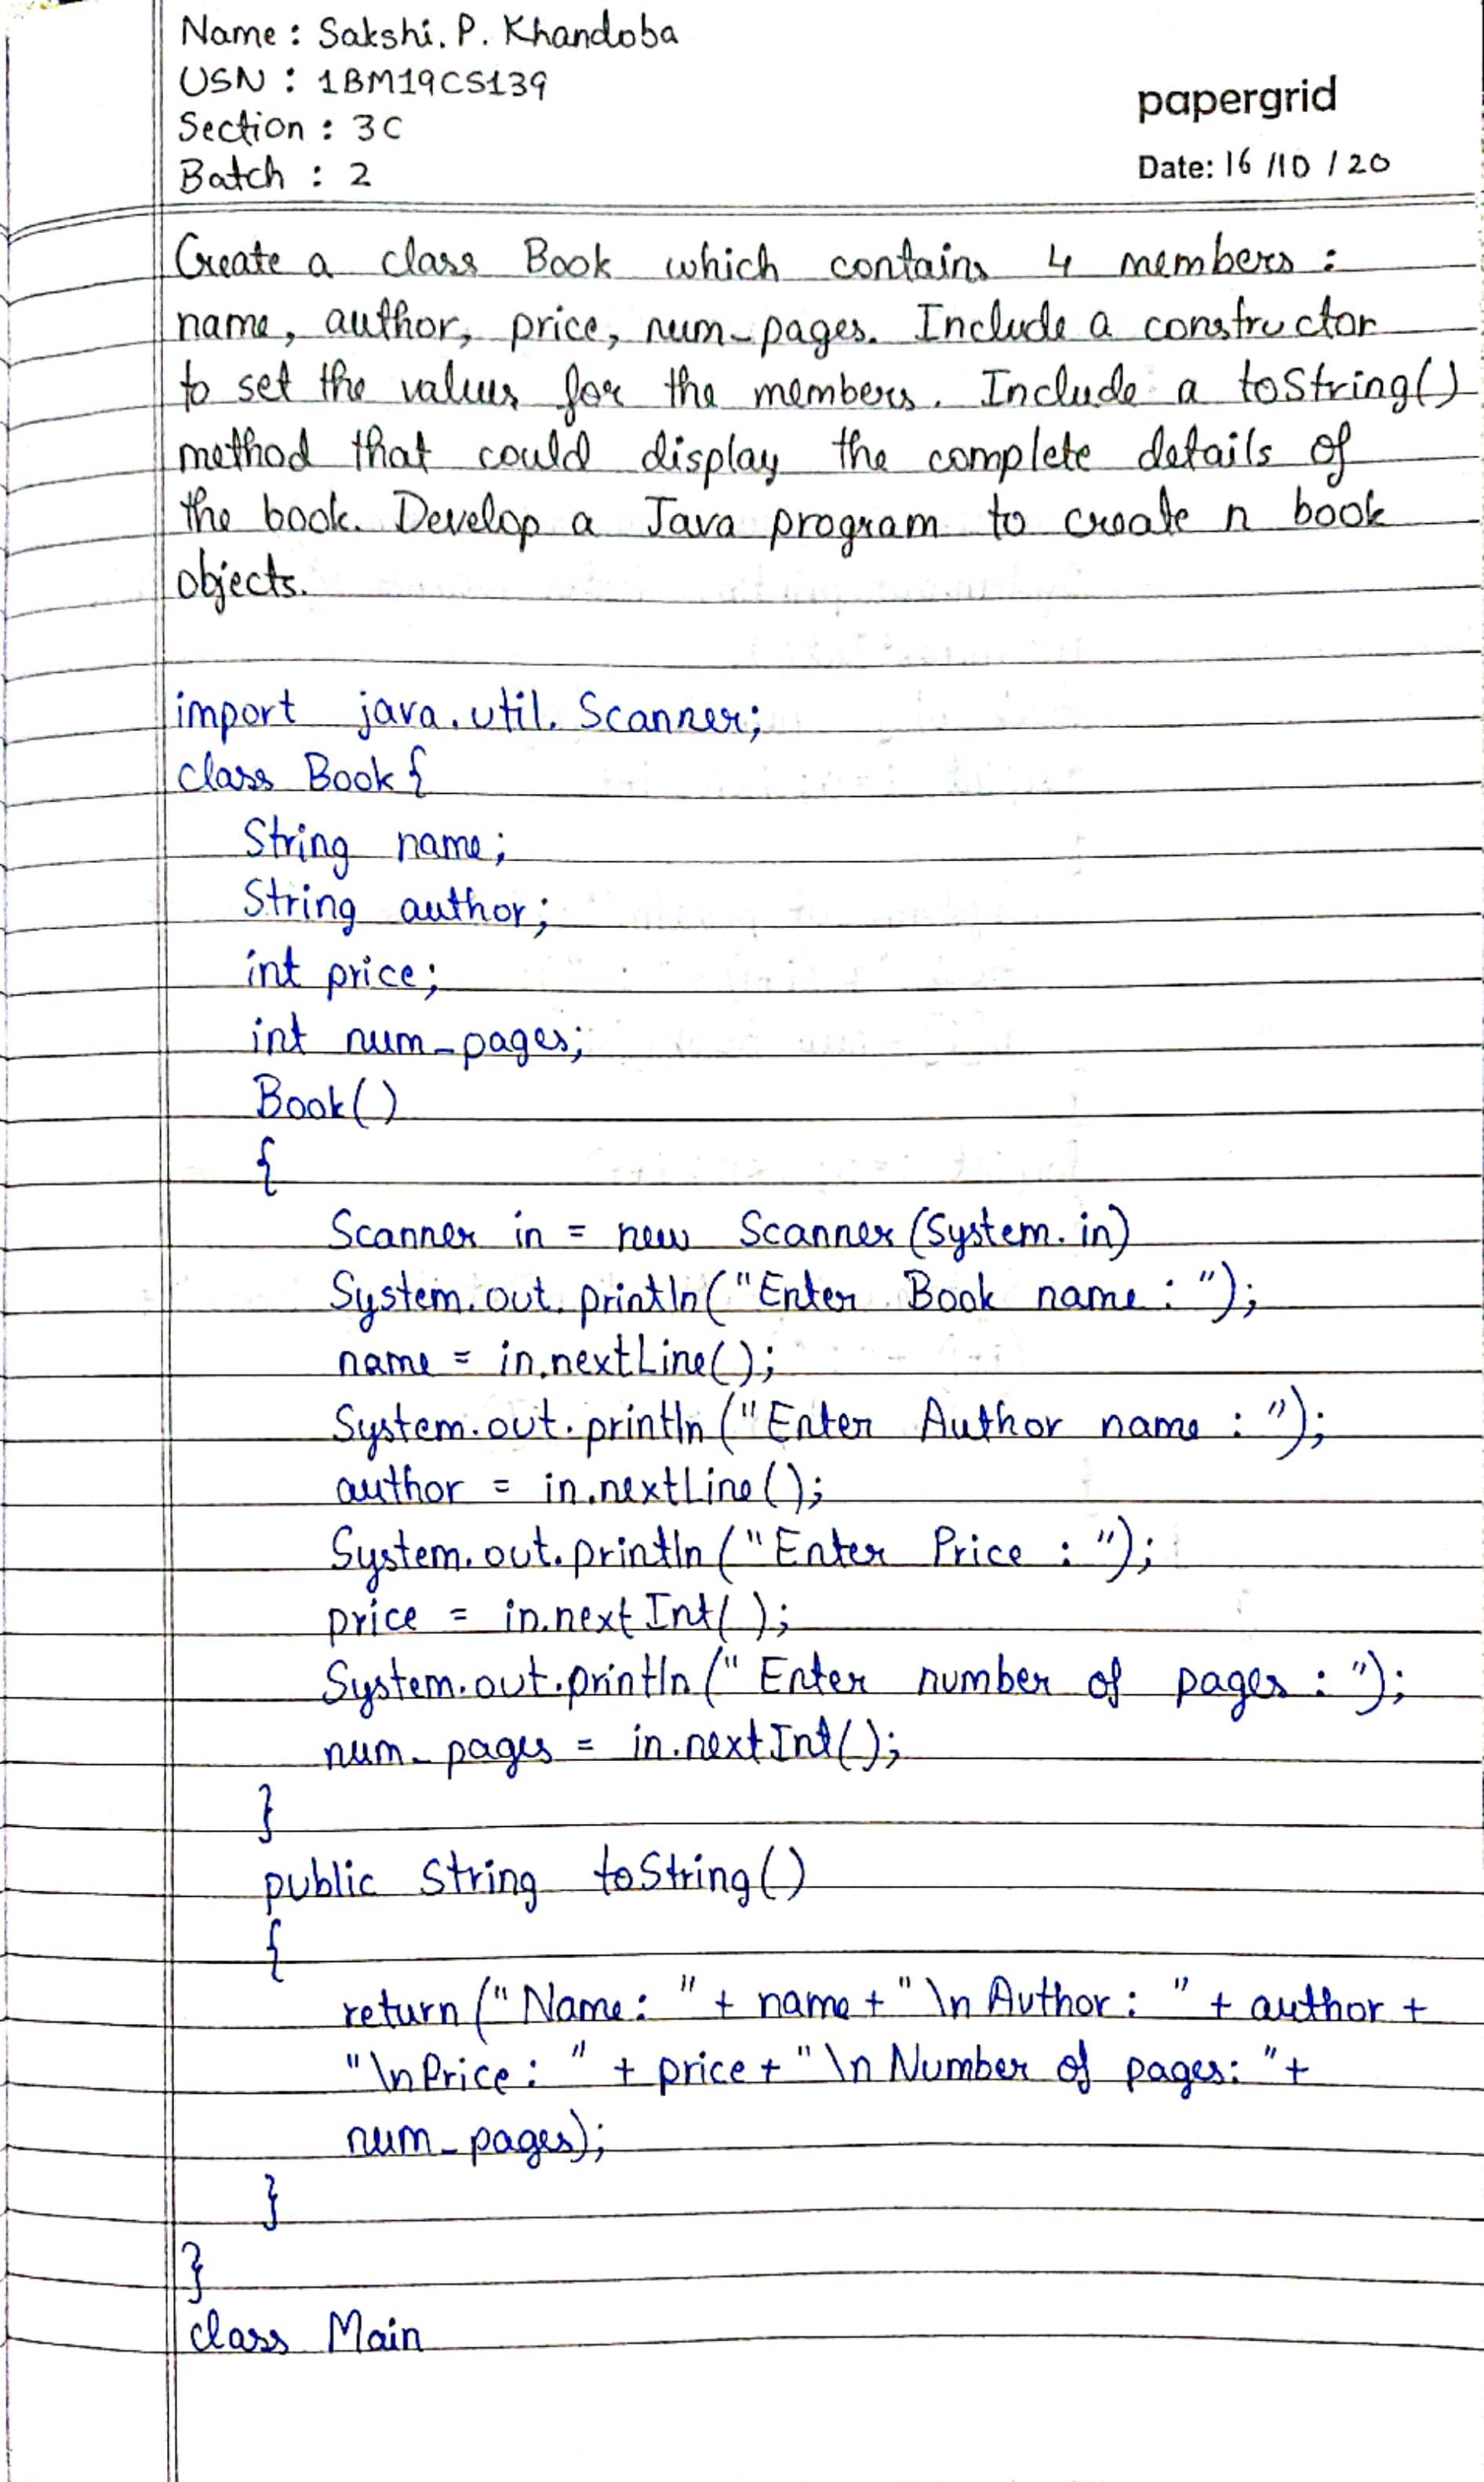 Name : Sakshi. P. Khandoba
USN : 1BM19CS139
Section : 3C
Batch : 2
papergrid
Date: 16 /10 / 20
Create a class Book which contains 4 members :
name, author, price, num_pages. Include a constructor
to set the values for the members. Include a toString()
method that could display the complete details of
the book. Develop a Java program to create n book
objects.
import java.util.Scanner;
class Book {
String name;
String author;
int price;
int num_pages;
Book()
{
Scanner in = new Scanner (System.in)
System.out.println("Enter Book name : ");
name = in.nextLine();
System.out.println ("Enter Author name : ");
author = in.nextLine();
System.out.println ("Enter Price : ");
price = in.nextInt();
System.out.println (" Enter number of pages : ");
num_pages = in.nextInt();
}
public String toString()
{
return ("Name: " + name + "\n Author : " + author +
"\nPrice : " + price + "\n Number of pages: " +
num_pages);
}
}
class Main